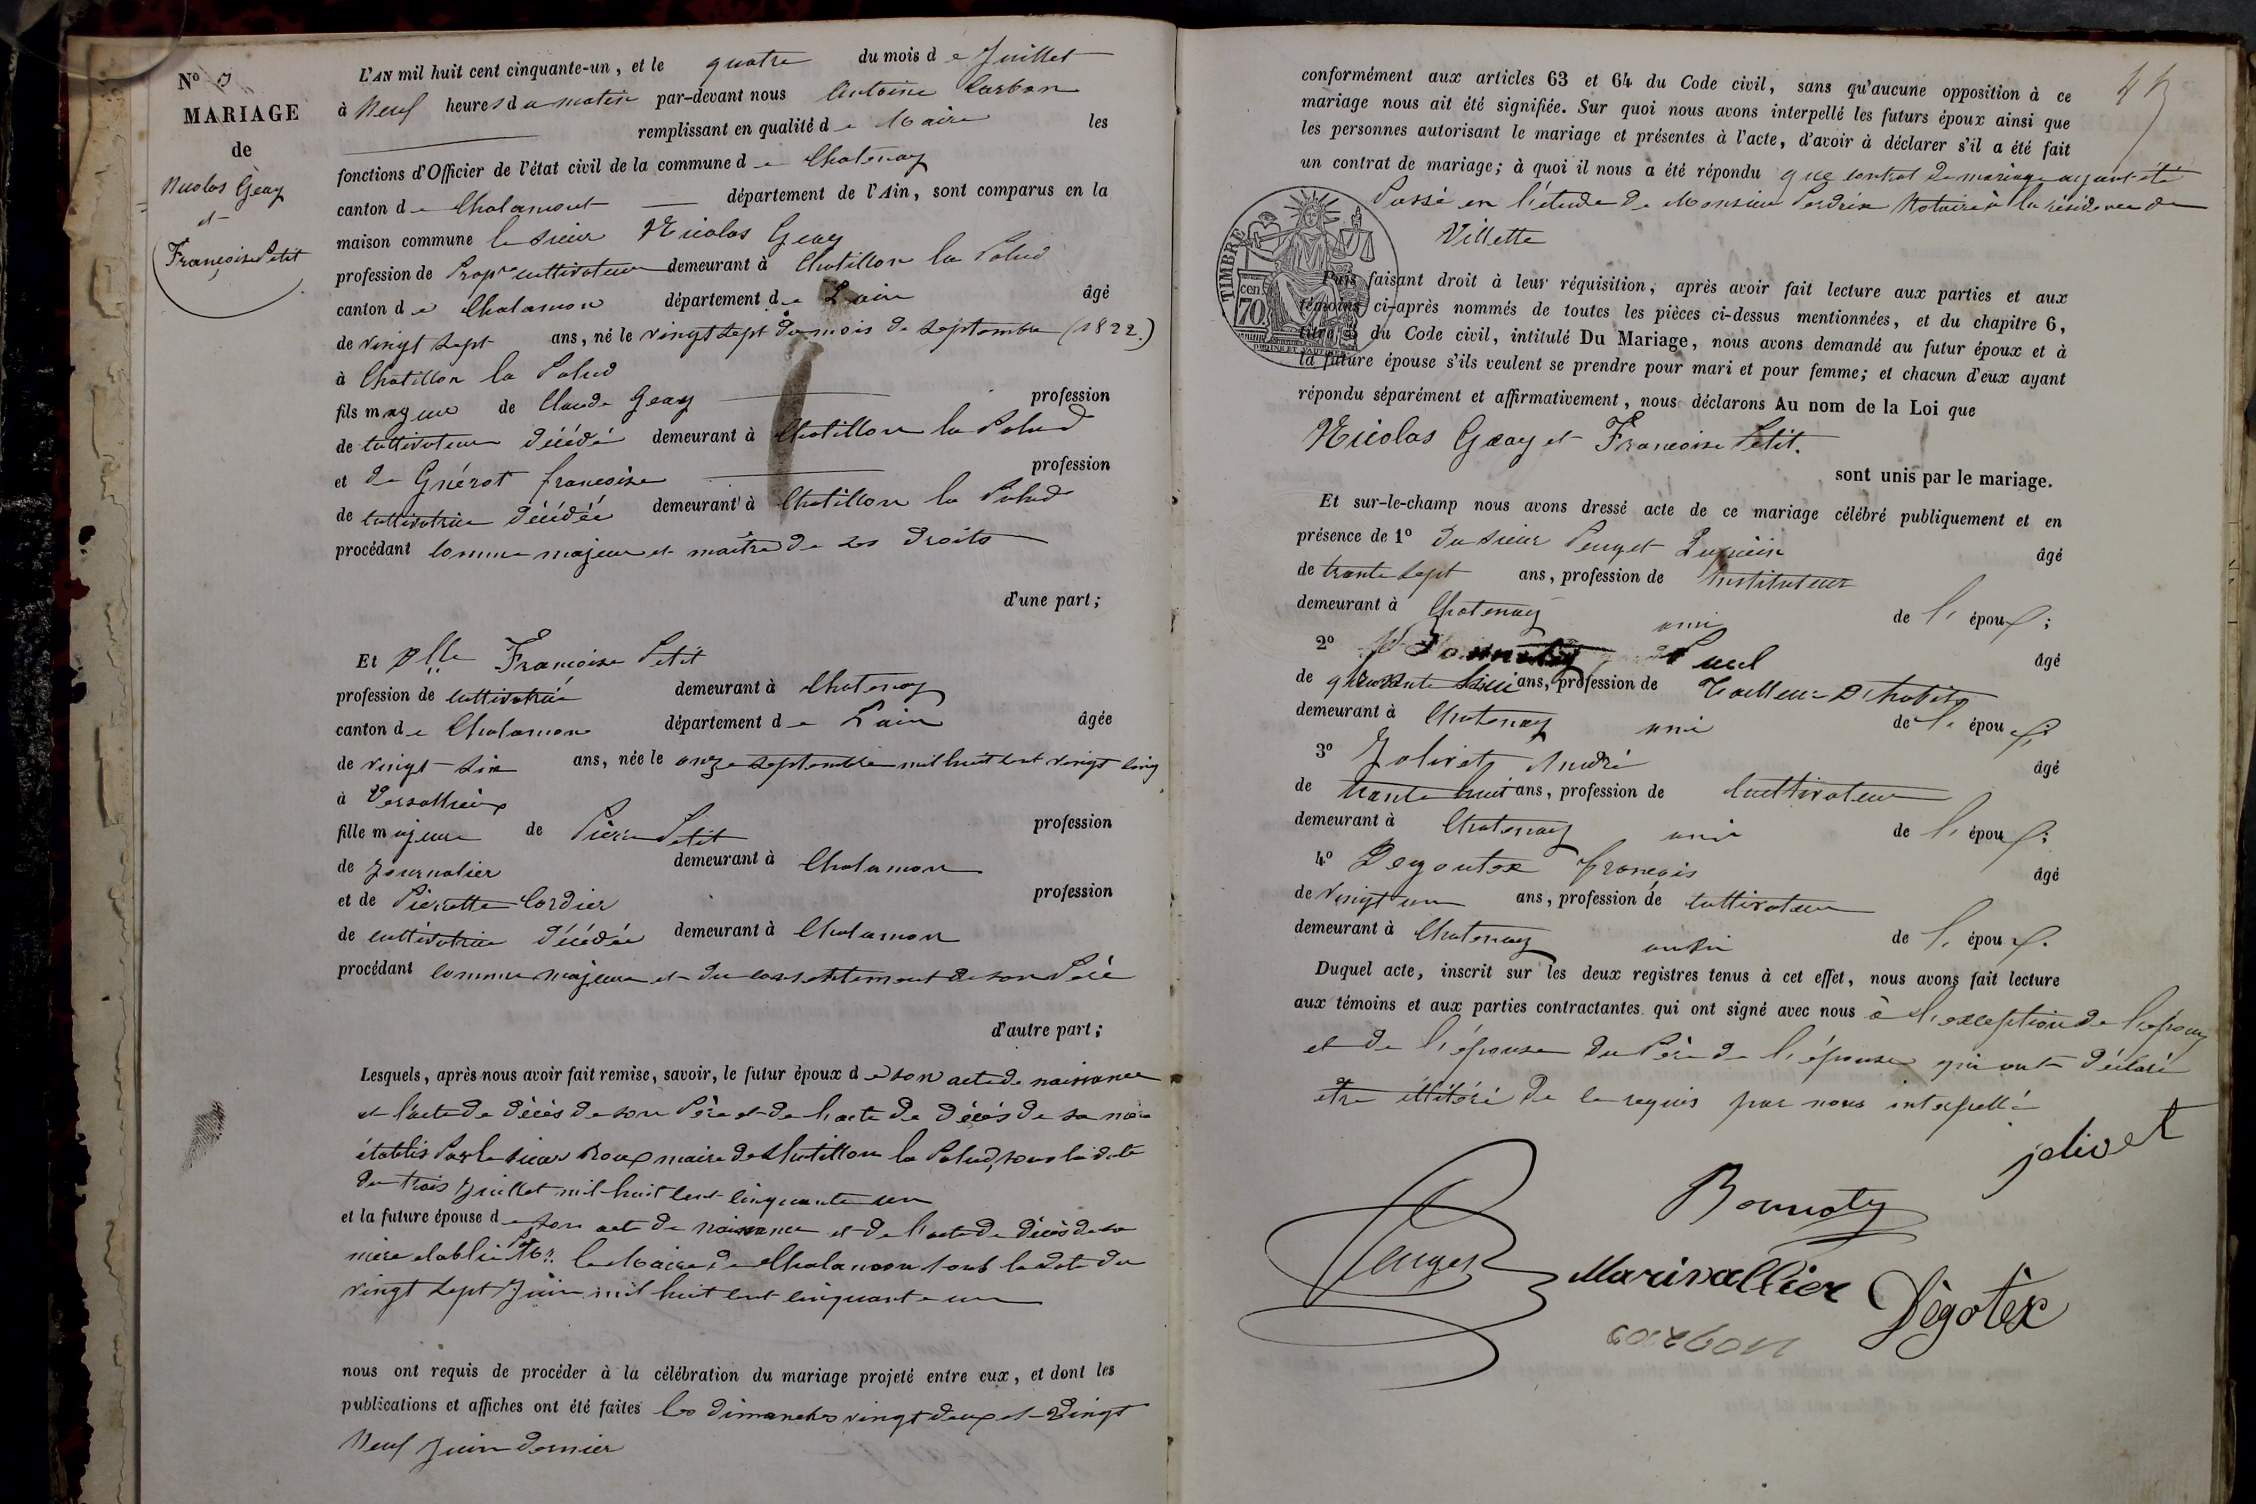 N° 3
MARIAGE
de
Nicolas Geay
et
Françoise Petit
L'AN mil huit cent cinquante-un, et le quatre du mois de Juillet
à Neuf heures du matin par-devant nous Antoine Carbon
remplissant en qualité de Maire les
fonctions d'Officier de l'état civil de la commune de Chatenay
canton de Chalamont département de l'Ain, sont comparus en la
maison commune le sieur Nicolas Geay
profession de Propre cultivateur demeurant à Chatillon la Palud
canton de Chalamon département de Lain âgé
de vingt sept ans, né le vingt sept du mois de septembre (1822.)
à Chatillon la Palud
fils mageur de Claude Geay profession
de cultivateur décédé demeurant à Chatillon la Palud
et de Guérot françoise profession
de cultivatrice décédée demeurant à Chatillon la Palud
procédant comme majeur et maître de ses droits
d'une part;
Et Dlle Françoise Petit
profession de cultivatrice demeurant à Chatenay
canton de Chalamon département de Lain âgée
de vingt-six ans, née le onze septembre mil huit cent vingt cinq
à Versallieux
fille majeure de Pierre Petit profession
de Journalier demeurant à Chalamon
et de Pierrette Cordier profession
de cultivatrice décédée demeurant à Chalamon
procédant comme majeure et du consentement de son Père
d'autre part;
Lesquels, après nous avoir fait remise, savoir, le futur époux de son acte de naissance
et l'acte de décès de son Père et de l'acte de décès de sa mère
établis Par le sieur Roux maire de Chatillon la Palud, sous la date
du trois Juillet mil huit cent cinquante un
et la future épouse de son acte de naissance et de l'acte de décès de sa
mère etabli Par le Maire de Chalamon sous la date du
vingt sept Juin mil huit cent cinquante un
nous ont requis de procéder à la célébration du mariage projeté entre eux, et dont les
publications et affiches ont été faites les dimanches vingt deux et Vingt
Neuf Juin dernier
conformément aux articles 63 et 64 du Code civil, sans qu'aucune opposition à ce
mariage nous ait été signifiée. Sur quoi nous avons interpellé les futurs époux ainsi que
les personnes autorisant le mariage et présentes à l'acte, d'avoir à déclarer s'il a été fait
un contrat de mariage; à quoi il nous a été répondu que contrat de mariage ayant été
Passé en l'étude de Monsieur Perdrix Notaire à la résidence de
Villette
TIMBRE
cen
70
Puis faisant droit à leur réquisition, après avoir fait lecture aux parties et aux
témoins ci-après nommés de toutes les pièces ci-dessus mentionnées, et du chapitre 6,
titre 5 du Code civil, intitulé Du Mariage, nous avons demandé au futur époux et à
la future épouse s'ils veulent se prendre pour mari et pour femme; et chacun d'eux ayant
répondu séparément et affirmativement, nous déclarons Au nom de la Loi que
Nicolas Geay et Françoise Petit.
sont unis par le mariage.
Et sur-le-champ nous avons dressé acte de ce mariage célébré publiquement et en
présence de 1° du sieur Peuget âgé
de trante sept ans, profession de Instituteur
demeurant à Chatenay ami de l'époux;
2° Paul âgé
de quarante ans, profession de Tailleur D'habits
demeurant à Chatenay ami de l'époux;
3° Jolivet André âgé
de trante huit ans, profession de Cultivateur
demeurant à Chatenay ami de l'époux;
4° Degoutex françois âgé
de vingt un ans, profession de cultivateur
demeurant à Chatenay aussi de l'époux.
Duquel acte, inscrit sur les deux registres tenus à cet effet, nous avons fait lecture
aux témoins et aux parties contractantes qui ont signé avec nous à l'exception de l'epoux
et de l'épouse du Père de l'épouse qui ont déclaré
etre illitéré de ce requis par nous interpellé
jolivet
Bonnoty
Peuget
Marinallier
Dègotèx
carbon